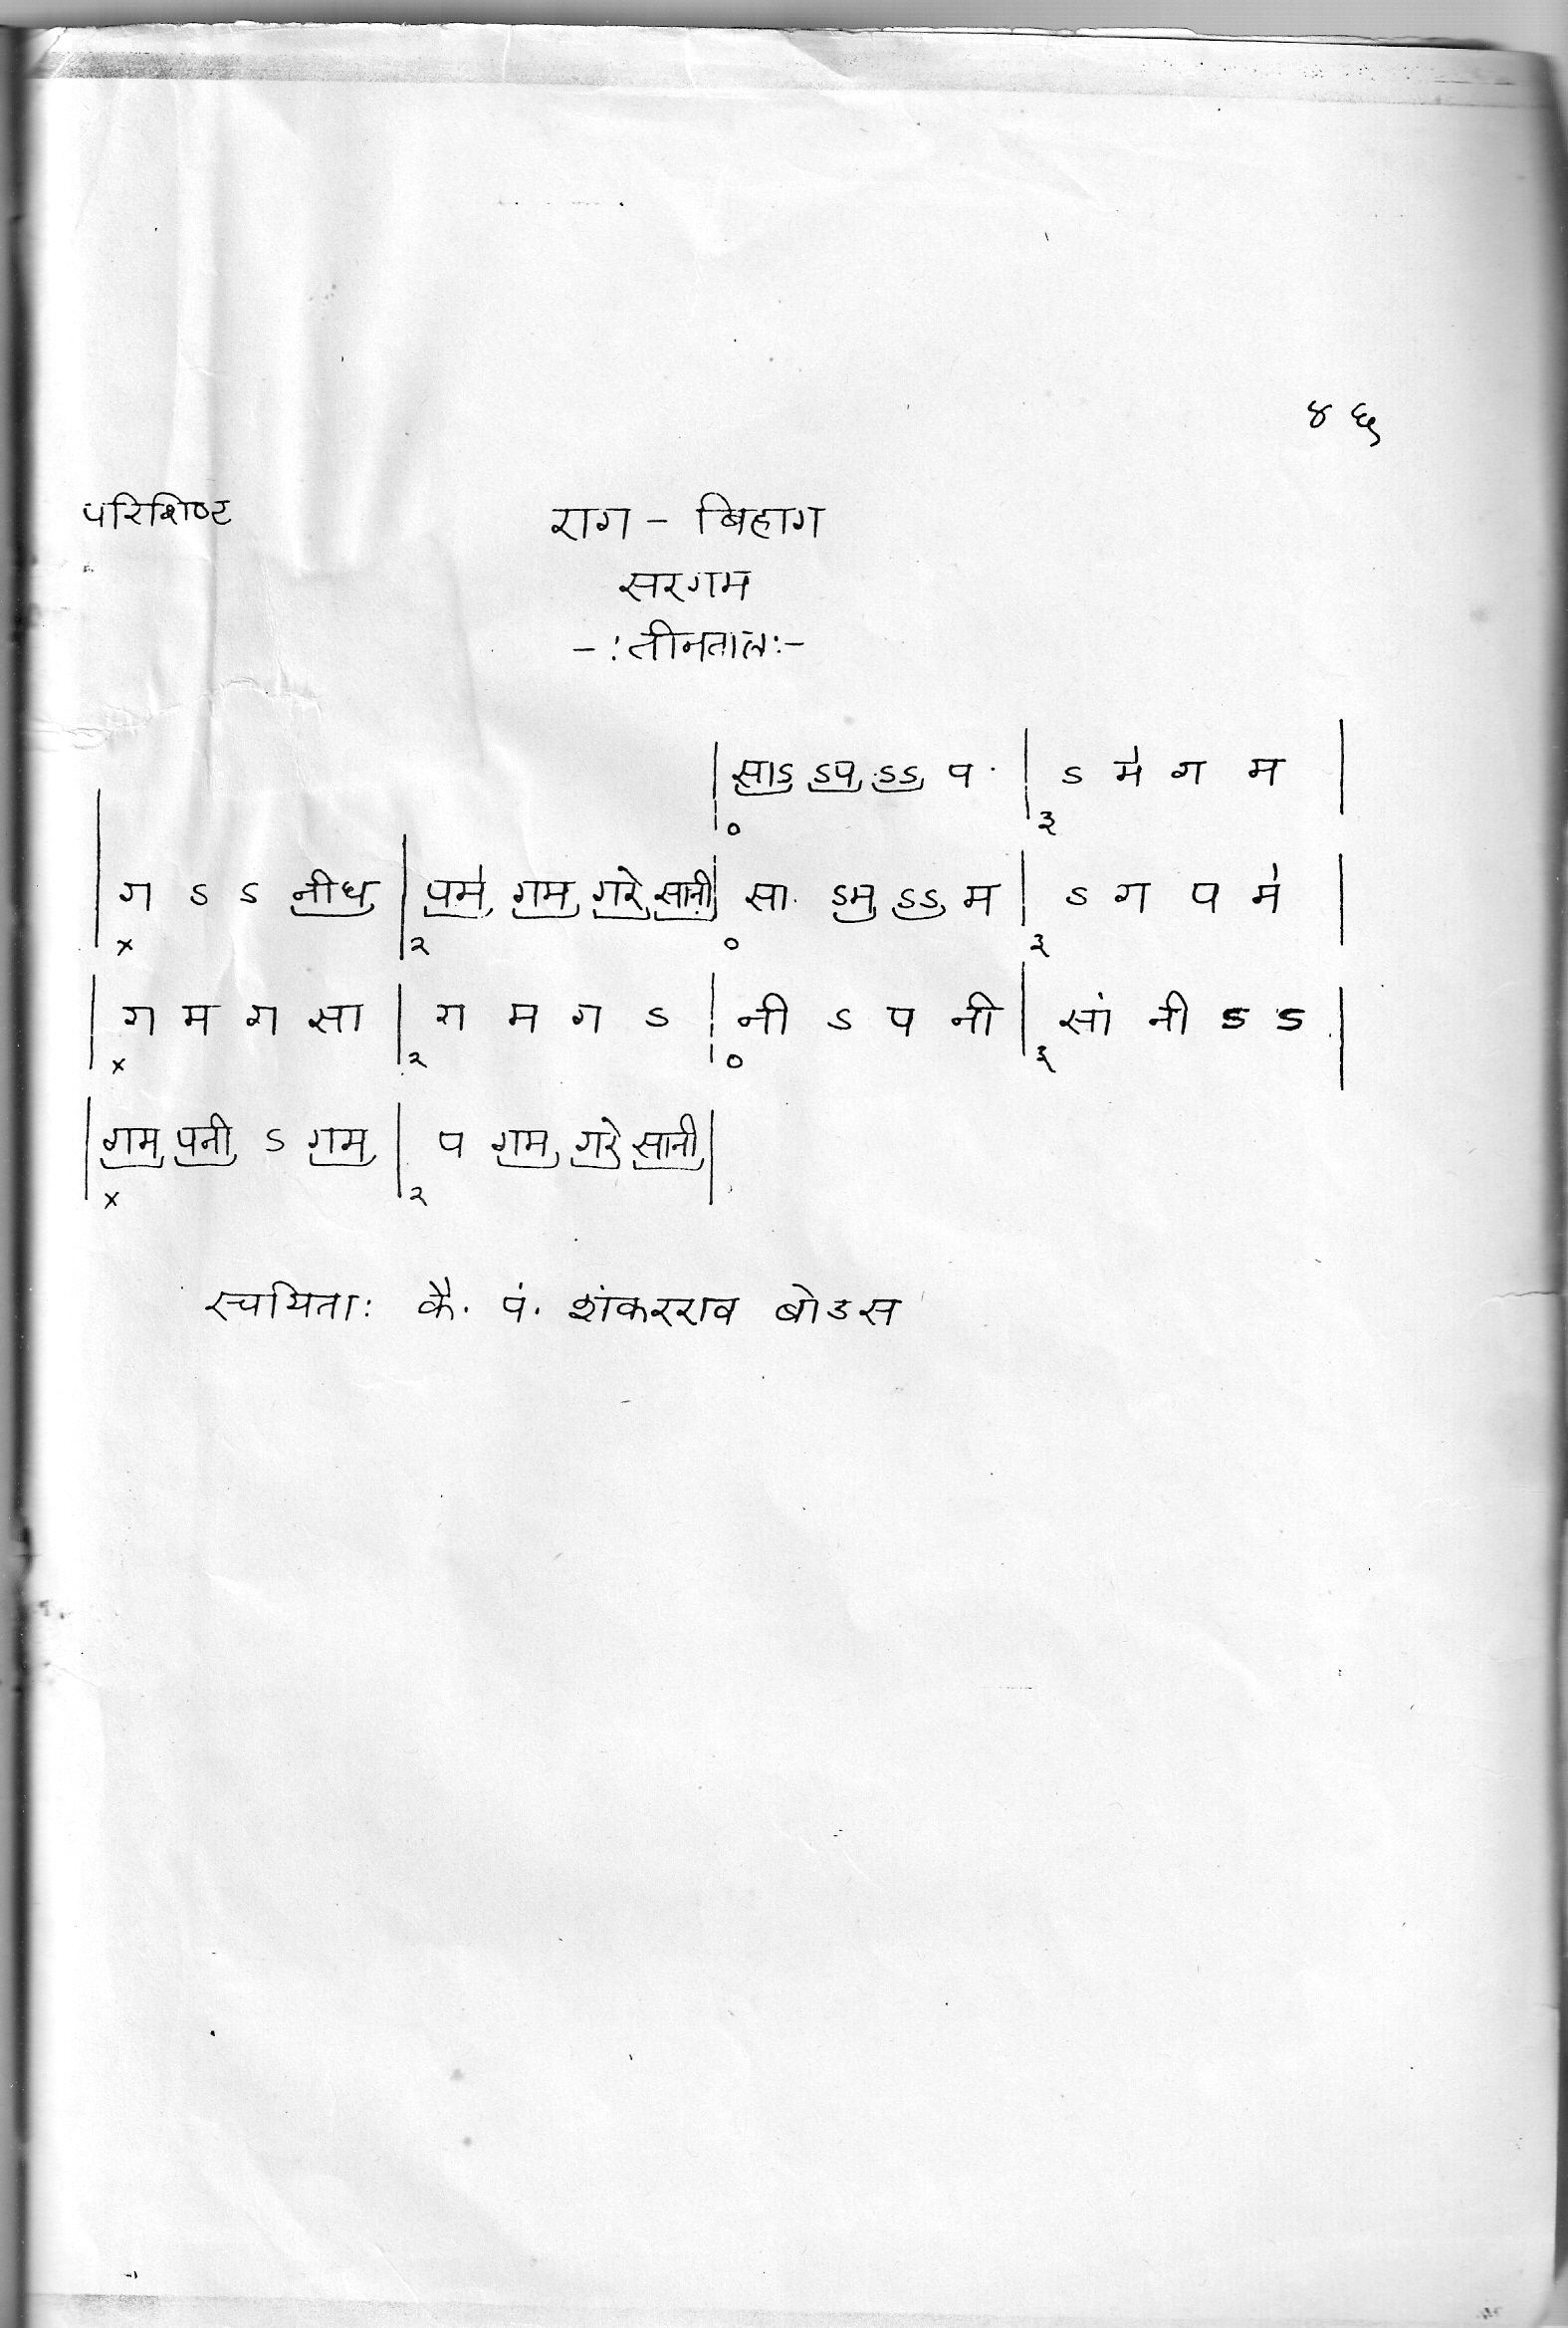 ४६
परिशिष्ट राग - बिहाग
सरगम
-:तीनताल:-
| साऽ ऽप ऽऽ प | ऽ मे ग म |
० ३
| ग ऽ ऽ नीध | पमे गम गरे सानी | सा ऽम ऽऽ म | ऽ ग प मे |
x २ ० ३
| ग म ग सा | ग म ग ऽ | नी ऽ प नी | सां नी ऽ ऽ |
x २ ० ३
| गम पनी ऽ गम | प गम गरे सानी |
x २
रचयिता: कै. पं. शंकरराव बोडस